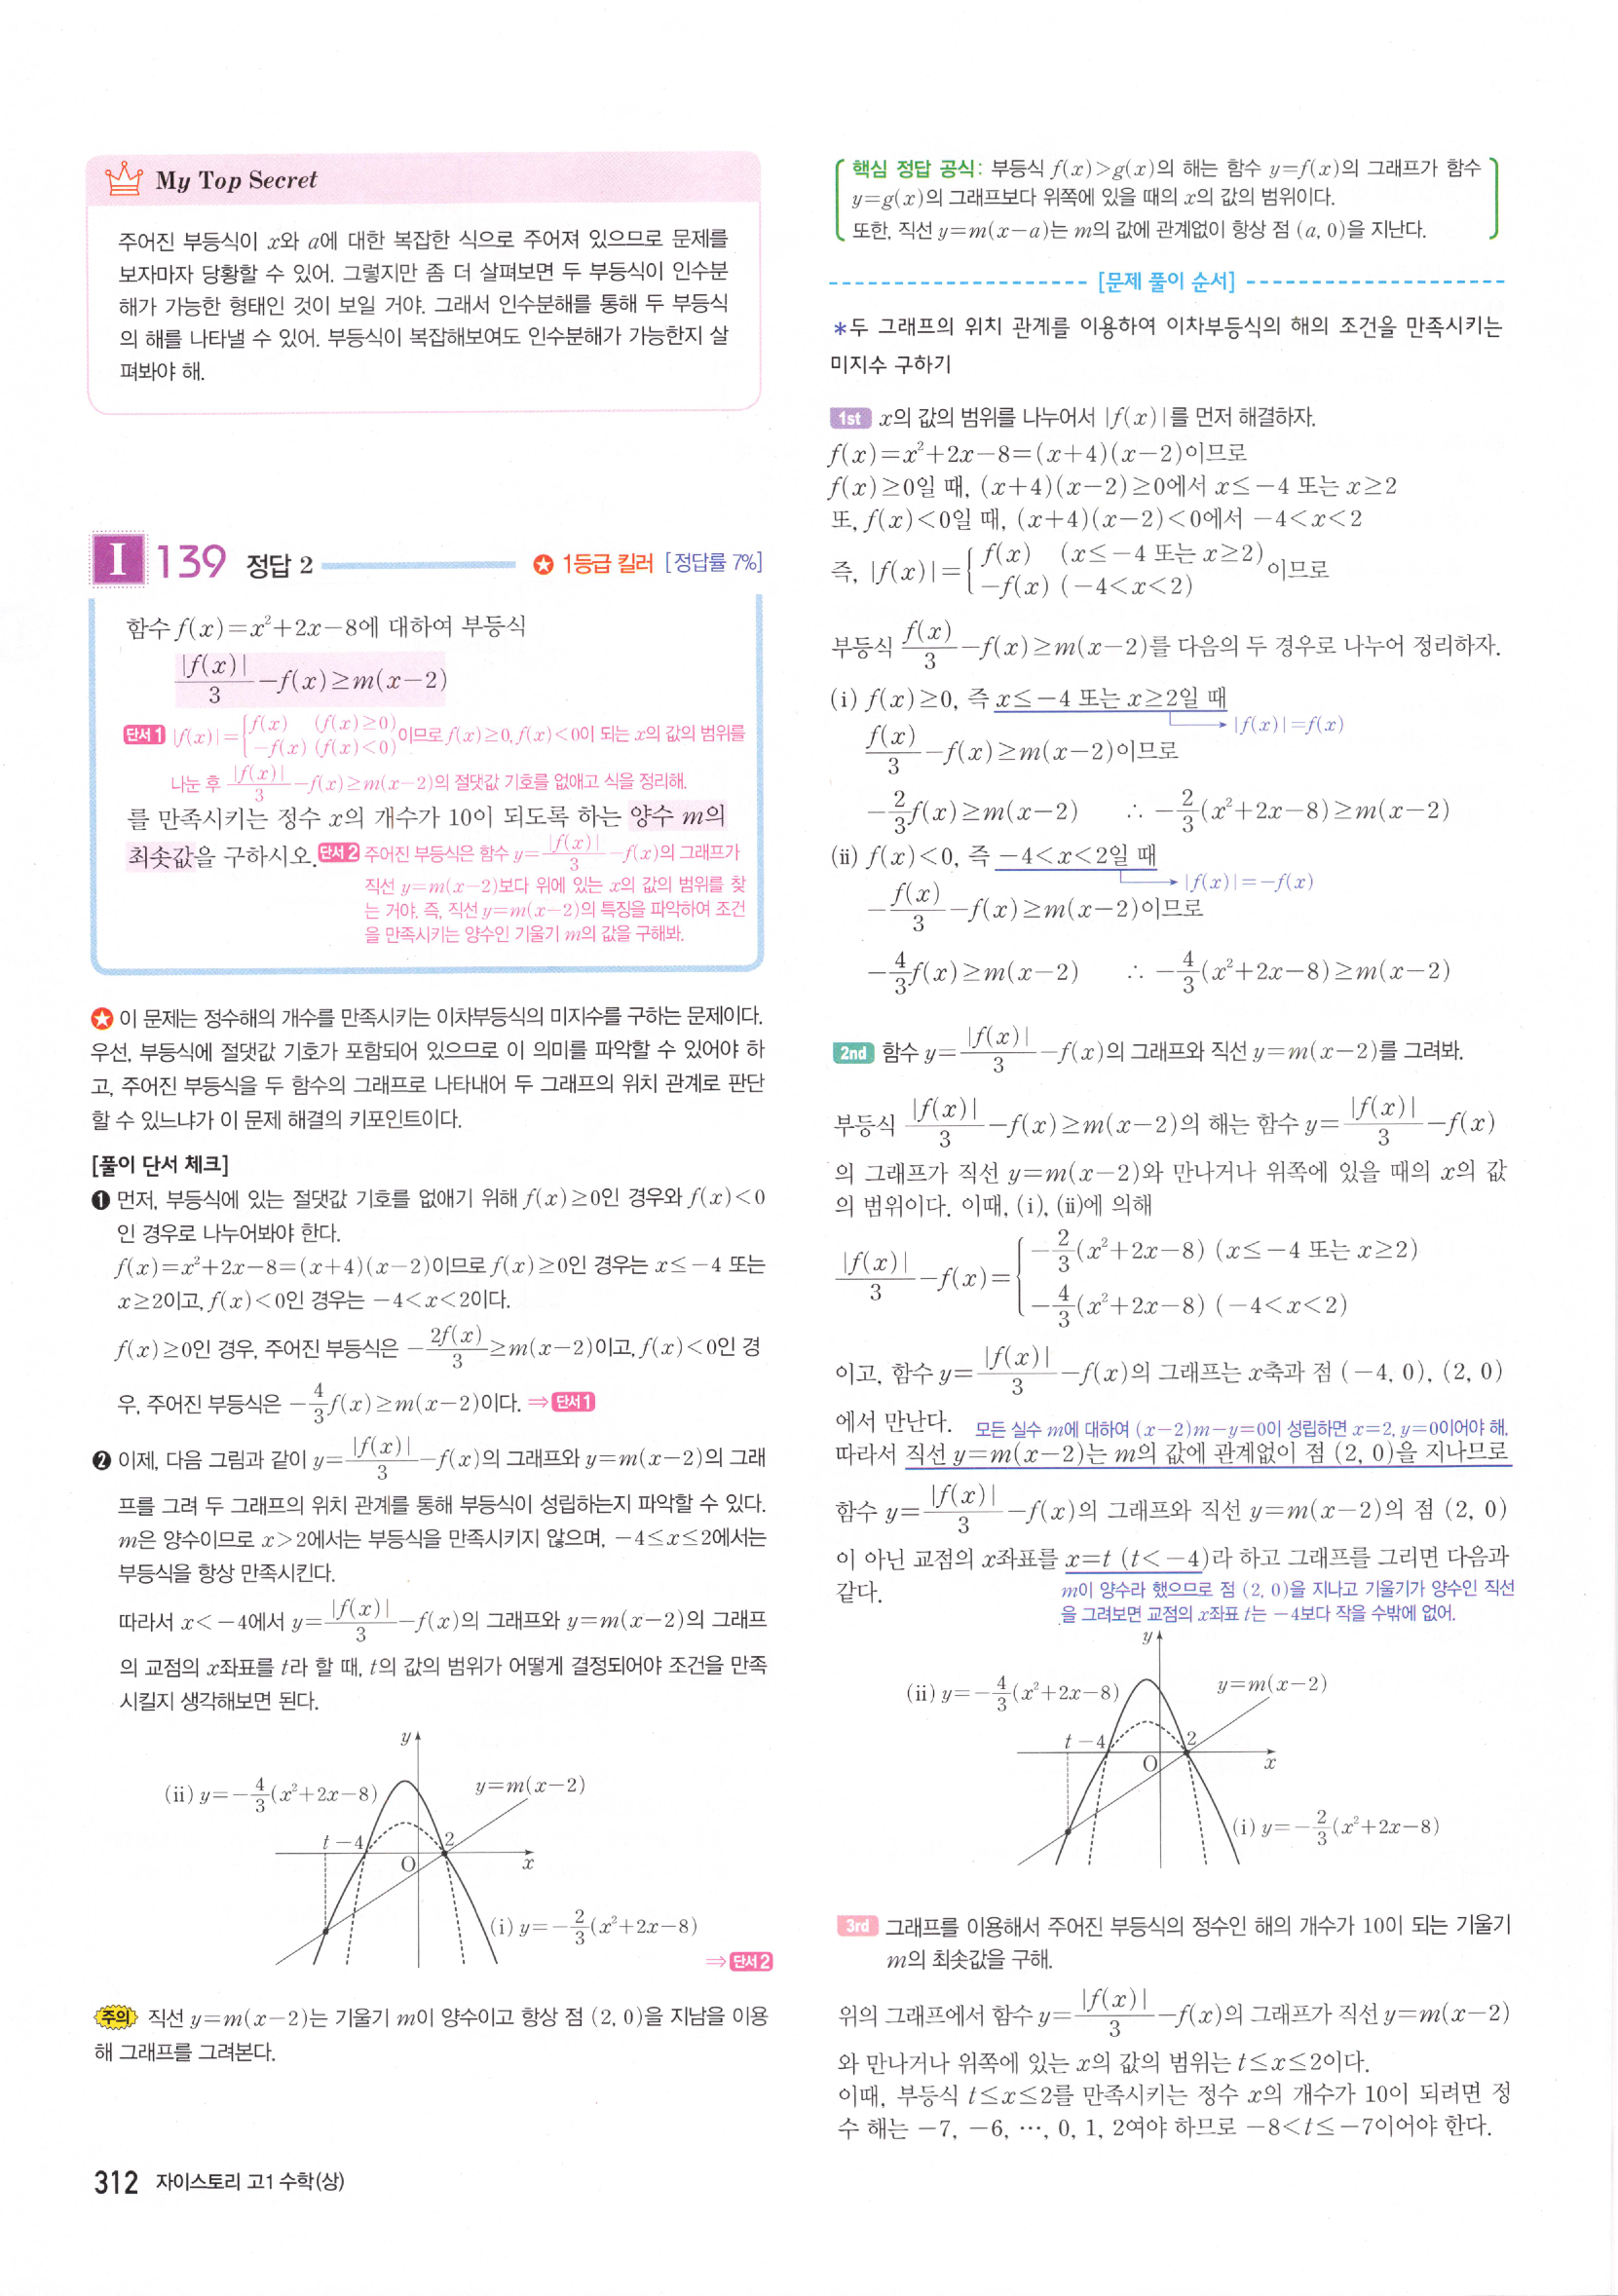 My Top Secret
주어진 부등식이 x와 a에 대한 복잡한 식으로 주어져 있으므로 문제를
보자마자 당황할 수 있어. 그렇지만 좀 더 살펴보면 두 부등식이 인수분
해가 가능한 형태인 것이 보일 거야. 그래서 인수분해를 통해 두 부등식
의 해를 나타낼 수 있어. 부등식이 복잡해보여도 인수분해가 가능한지 살
펴봐야 해.
I 139 정답 2 ★ 1등급 킬러 [정답률 7%]
함수 f(x)=x²+2x-8에 대하여 부등식
|f(x)|/3 -f(x)≥m(x-2)
단서1 |f(x)|={f(x) (f(x)≥0) -f(x) (f(x)<0)이므로 f(x)≥0, f(x)<0이 되는 x의 값의 범위를
나눈 후 |f(x)|/3 -f(x)≥m(x-2)의 절댓값 기호를 없애고 식을 정리해.
를 만족시키는 정수 x의 개수가 10이 되도록 하는 양수 m의
최솟값을 구하시오. 단서2 주어진 부등식은 함수 y=|f(x)|/3 -f(x)의 그래프가
직선 y=m(x-2)보다 위에 있는 x의 값의 범위를 찾
는 거야. 즉, 직선 y=m(x-2)의 특징을 파악하여 조건
을 만족시키는 양수인 기울기 m의 값을 구해봐.
★ 이 문제는 정수해의 개수를 만족시키는 이차부등식의 미지수를 구하는 문제이다.
우선, 부등식에 절댓값 기호가 포함되어 있으므로 이 의미를 파악할 수 있어야 하
고, 주어진 부등식을 두 함수의 그래프로 나타내어 두 그래프의 위치 관계로 판단
할 수 있느냐가 이 문제 해결의 키포인트이다.
[풀이 단서 체크]
❶ 먼저, 부등식에 있는 절댓값 기호를 없애기 위해 f(x)≥0인 경우와 f(x)<0
인 경우로 나누어봐야 한다.
f(x)=x²+2x-8=(x+4)(x-2)이므로 f(x)≥0인 경우는 x≤-4 또는
x≥2이고, f(x)<0인 경우는 -4<x<2이다.
f(x)≥0인 경우, 주어진 부등식은 -2f(x)/3≥m(x-2)이고, f(x)<0인 경
우, 주어진 부등식은 -4/3f(x)≥m(x-2)이다. ⇒ 단서1
❷ 이제, 다음 그림과 같이 y=|f(x)|/3 -f(x)의 그래프와 y=m(x-2)의 그래
프를 그려 두 그래프의 위치 관계를 통해 부등식이 성립하는지 파악할 수 있다.
m은 양수이므로 x>2에서는 부등식을 만족시키지 않으며, -4≤x≤2에서는
부등식을 항상 만족시킨다.
따라서 x<-4에서 y=|f(x)|/3 -f(x)의 그래프와 y=m(x-2)의 그래프
의 교점의 x좌표를 t라 할 때, t의 값의 범위가 어떻게 결정되어야 조건을 만족
시킬지 생각해보면 된다.
y
(ii) y=-4/3(x²+2x-8)
y=m(x-2)
t -4 2
O x
(i) y=-2/3(x²+2x-8)
⇒ 단서2
주의 직선 y=m(x-2)는 기울기 m이 양수이고 항상 점 (2, 0)을 지남을 이용
해 그래프를 그려본다.
312 자이스토리 고1 수학(상)
핵심 정답 공식: 부등식 f(x)>g(x)의 해는 함수 y=f(x)의 그래프가 함수
y=g(x)의 그래프보다 위쪽에 있을 때의 x의 값의 범위이다.
또한, 직선 y=m(x-a)는 m의 값에 관계없이 항상 점 (a, 0)을 지난다.
[문제 풀이 순서]
*두 그래프의 위치 관계를 이용하여 이차부등식의 해의 조건을 만족시키는
미지수 구하기
1st x의 값의 범위를 나누어서 |f(x)|를 먼저 해결하자.
f(x)=x²+2x-8=(x+4)(x-2)이므로
f(x)≥0일 때, (x+4)(x-2)≥0에서 x≤-4 또는 x≥2
또, f(x)<0일 때, (x+4)(x-2)<0에서 -4<x<2
즉, |f(x)|={f(x) (x≤-4 또는 x≥2) -f(x) (-4<x<2)이므로
부등식 f(x)/3 -f(x)≥m(x-2)를 다음의 두 경우로 나누어 정리하자.
(i) f(x)≥0, 즉 x≤-4 또는 x≥2일 때
|f(x)|=f(x)
f(x)/3 -f(x)≥m(x-2)이므로
-2/3f(x)≥m(x-2) ∴ -2/3(x²+2x-8)≥m(x-2)
(ii) f(x)<0, 즉 -4<x<2일 때
|f(x)|=-f(x)
-f(x)/3 -f(x)≥m(x-2)이므로
-4/3f(x)≥m(x-2) ∴ -4/3(x²+2x-8)≥m(x-2)
2nd 함수 y=|f(x)|/3 -f(x)의 그래프와 직선 y=m(x-2)를 그려봐.
부등식 |f(x)|/3 -f(x)≥m(x-2)의 해는 함수 y=|f(x)|/3 -f(x)
의 그래프가 직선 y=m(x-2)와 만나거나 위쪽에 있을 때의 x의 값
의 범위이다. 이때, (i), (ii)에 의해
|f(x)|/3 -f(x)={-2/3(x²+2x-8) (x≤-4 또는 x≥2)
-4/3(x²+2x-8) (-4<x<2)
이고, 함수 y=|f(x)|/3 -f(x)의 그래프는 x축과 점 (-4, 0), (2, 0)
에서 만난다. 모든 실수 m에 대하여 (x-2)m-y=0이 성립하면 x=2, y=0이어야 해.
따라서 직선 y=m(x-2)는 m의 값에 관계없이 점 (2, 0)을 지나므로
함수 y=|f(x)|/3 -f(x)의 그래프와 직선 y=m(x-2)의 점 (2, 0)
이 아닌 교점의 x좌표를 x=t (t<-4)라 하고 그래프를 그리면 다음과
같다. m이 양수라 했으므로 점 (2, 0)을 지나고 기울기가 양수인 직선
을 그려보면 교점의 x좌표 t는 -4보다 작을 수밖에 없어.
y
(ii) y=-4/3(x²+2x-8)
y=m(x-2)
t -4 2
O x
(i) y=-2/3(x²+2x-8)
3rd 그래프를 이용해서 주어진 부등식의 정수인 해의 개수가 10이 되는 기울기
m의 최솟값을 구해.
위의 그래프에서 함수 y=|f(x)|/3 -f(x)의 그래프가 직선 y=m(x-2)
와 만나거나 위쪽에 있는 x의 값의 범위는 t≤x≤2이다.
이때, 부등식 t≤x≤2를 만족시키는 정수 x의 개수가 10이 되려면 정
수 해는 -7, -6, ⋯, 0, 1, 2여야 하므로 -8<t≤-7이어야 한다.